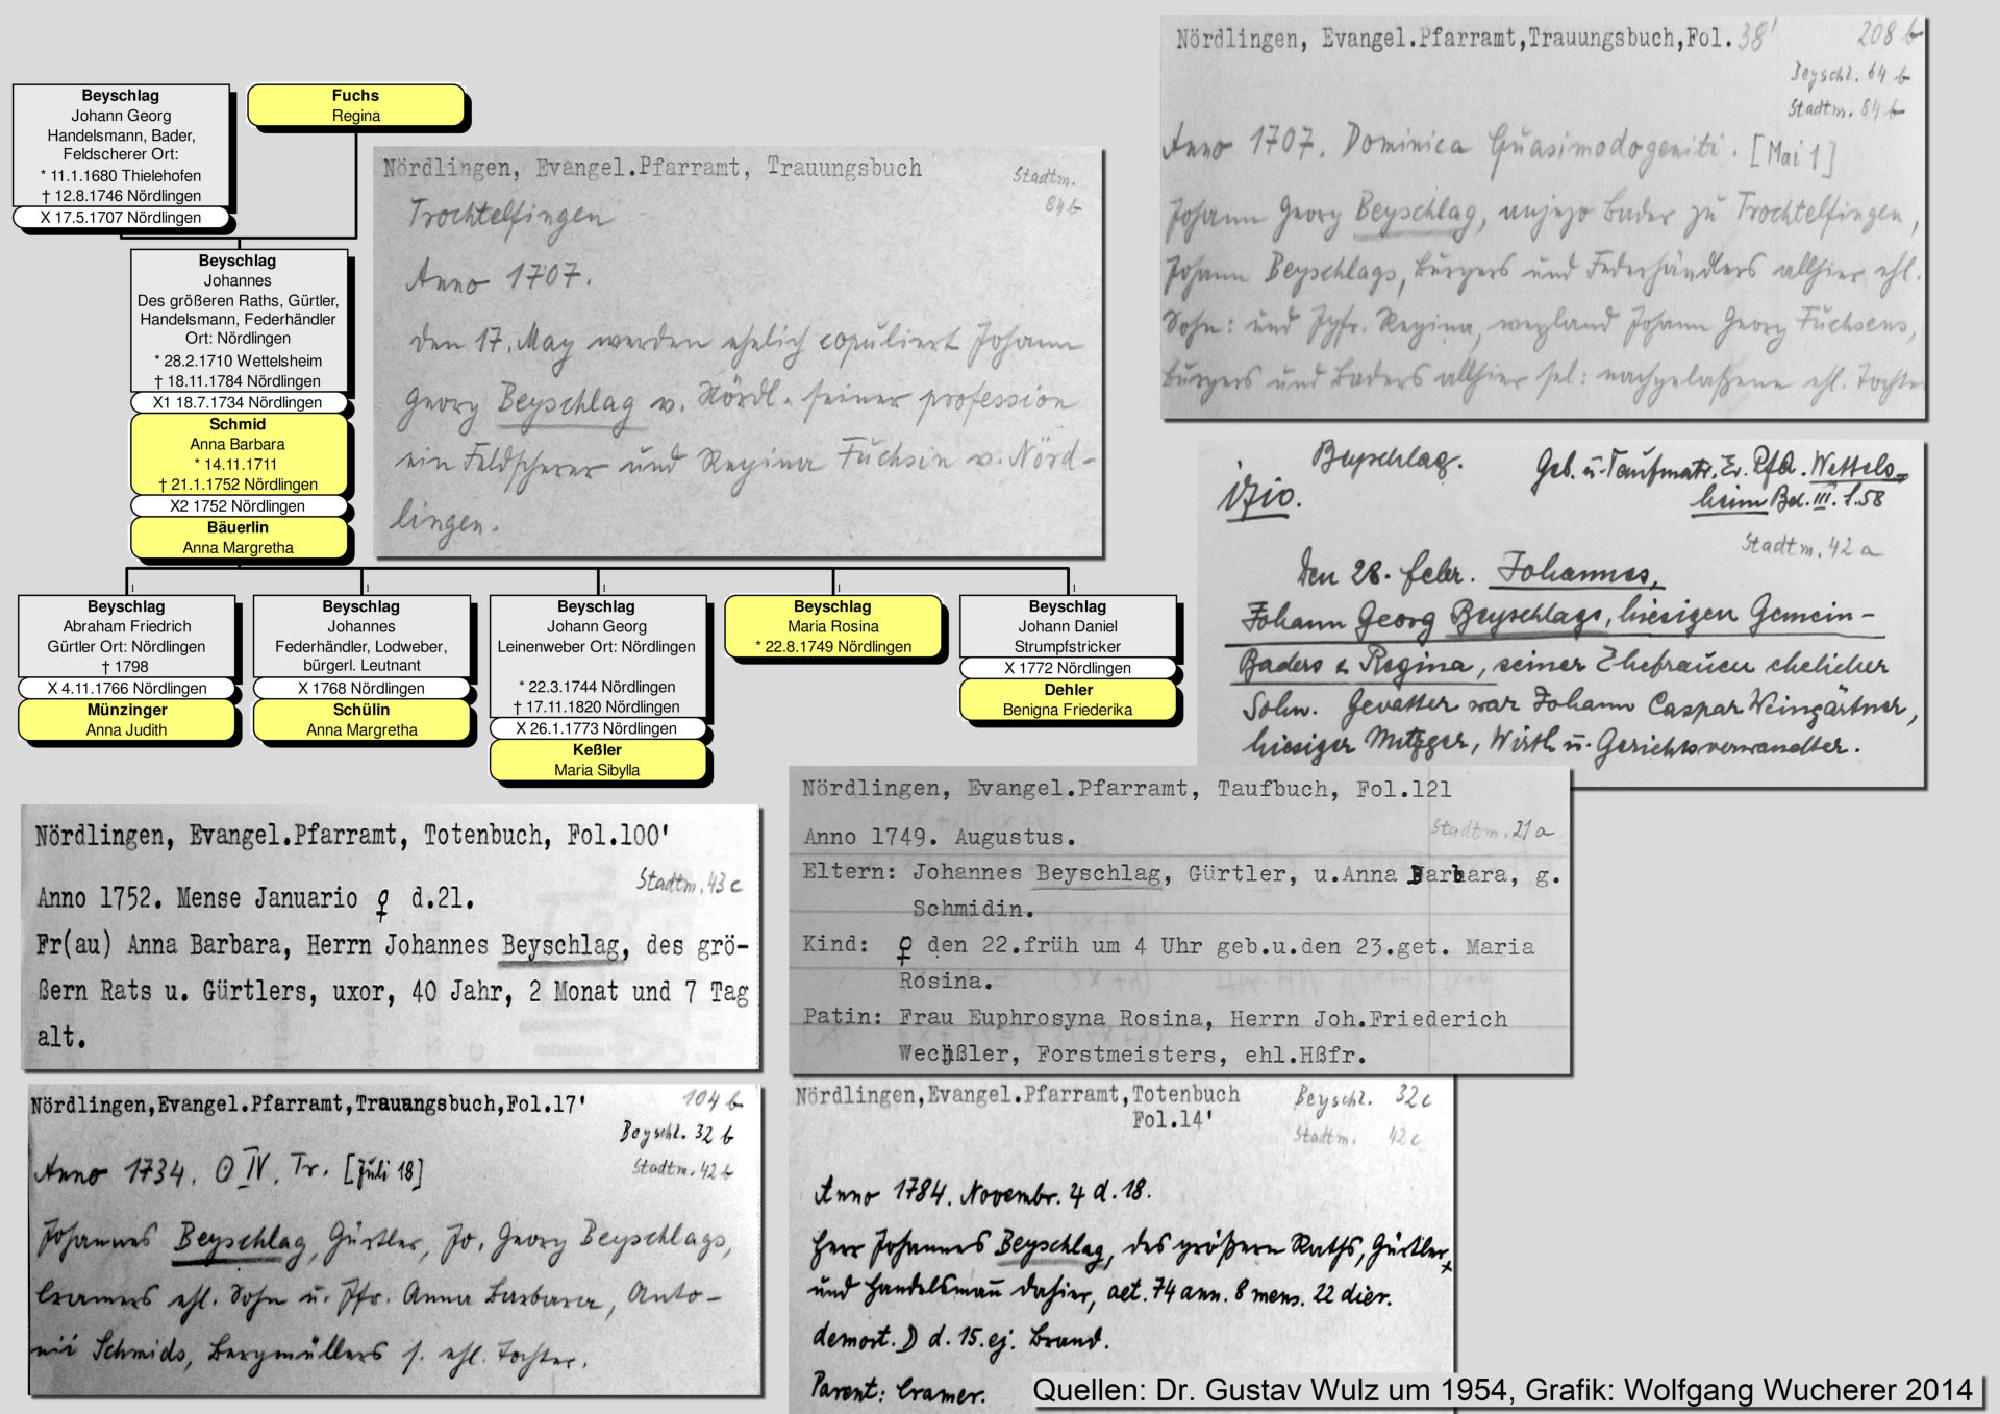 Beyschlag
Johann Georg
Handelsmann, Bader,
Feldscherer Ort:
* 11.1.1680 Thielehofen
† 12.8.1746 Nördlingen
X 17.5.1707 Nördlingen
Fuchs
Regina
Beyschlag
Johannes
Des größeren Raths, Gürtler,
Handelsmann, Federhändler
Ort: Nördlingen
* 28.2.1710 Wettelsheim
† 18.11.1784 Nördlingen
X1 18.7.1734 Nördlingen
Schmid
Anna Barbara
* 14.11.1711
† 21.1.1752 Nördlingen
X2 1752 Nördlingen
Bäuerlin
Anna Margretha
Beyschlag
Abraham Friedrich
Gürtler Ort: Nördlingen
† 1798
X 4.11.1766 Nördlingen
Münzinger
Anna Judith
Beyschlag
Johannes
Federhändler, Lodweber,
bürgerl. Leutnant
X 1768 Nördlingen
Schülin
Anna Margretha
Beyschlag
Johann Georg
Leinenweber Ort: Nördlingen
* 22.3.1744 Nördlingen
† 17.11.1820 Nördlingen
X 26.1.1773 Nördlingen
Keßler
Maria Sibylla
Beyschlag
Maria Rosina
* 22.8.1749 Nördlingen
Beyschlag
Johann Daniel
Strumpfstricker
X 1772 Nördlingen
Dehler
Benigna Friederika
Nördlingen, Evangel.Pfarramt, Trauungsbuch
Stadtm.
84b
Trochtelfingen
Anno 1707.
den 17. May werden ehelich copuliert Johann
Georg Beyschlag v. Nördl. seiner profession
ein Feldscherer und Regina Fuchsin v. Nörd-
lingen.
Nördlingen, Evangel.Pfarramt,Trauungsbuch,Fol.38'
208 b
Beyschl. 64 b
Stadtm. 84 b
Anno 1707. Dominica Quasimodogeniti. [Mai 1]
Johann Georg Beyschlag, anjezo Bader zu Trochtelfingen,
Johann Beyschlags, Burgers und Federhändlers allhier ehl.
Sohn: und Jgfr. Regina, weyland Johann Georg Fuchsens,
Burgers und Baders allhier sel: nachgelaßene ehl. Tochter
Beyschlag.
Geb. u. Taufmatr. Ev. Pfd. Wettels-
heim Bd. III. f. 58
1710.
Stadtm. 42 a
Den 28. Febr. Johannes,
Johann Georg Beyschlags, hiesigen Gemein-
Baders & Regina, seiner Ehefrauen ehelicher
Sohn. Gevatter war Johann Caspar Weingärtner,
hiesiger Metzger, Wirth u. Gerichtsverwandter.
Nördlingen, Evangel.Pfarramt, Totenbuch, Fol.100'
Stadtm. 43 c
Anno 1752. Mense Januario ♀ d.21.
Fr(au) Anna Barbara, Herrn Johannes Beyschlag, des grö-
ßern Rats u. Gürtlers, uxor, 40 Jahr, 2 Monat und 7 Tag
alt.
Nördlingen, Evangel.Pfarramt, Taufbuch, Fol.121
Stadtm. 21 a
Anno 1749. Augustus.
Eltern: Johannes Beyschlag, Gürtler, u.Anna Barbara, g.
Schmidin.
Kind: ♀ den 22.früh um 4 Uhr geb.u.den 23.get. Maria
Rosina.
Patin: Frau Euphrosyna Rosina, Herrn Joh.Friederich
Wechßler, Forstmeisters, ehl.Hßfr.
Nördlingen,Evangel.Pfarramt,Trauungsbuch,Fol.17'
104 b
Beyschl. 32 b
Stadtm. 42 b
Anno 1734. ⊙ IV. Tr. [Juli 18]
Johannes Beyschlag, Gürtler, Jo. Georg Beyschlags,
Cramers ehl. Sohn u. Jfr. Anna Barbara, Anto-
nii Schmids, Bergmüllers f. ehl. Tochter.
Nördlingen,Evangel.Pfarramt,Totenbuch
Fol.14'
Beyschl. 32c
Stadtm. 42 c
Anno 1784. Novembr. ♃ d. 18.
Herr Johannes Beyschlag, des größern Raths, Gürtler
und Handelsmañ dahier, aet. 74 ann. 8 mens. 22 dier.
demort. ☽ d. 15. ej. Brand.
Parent: Cramer.
Quellen: Dr. Gustav Wulz um 1954, Grafik: Wolfgang Wucherer 2014